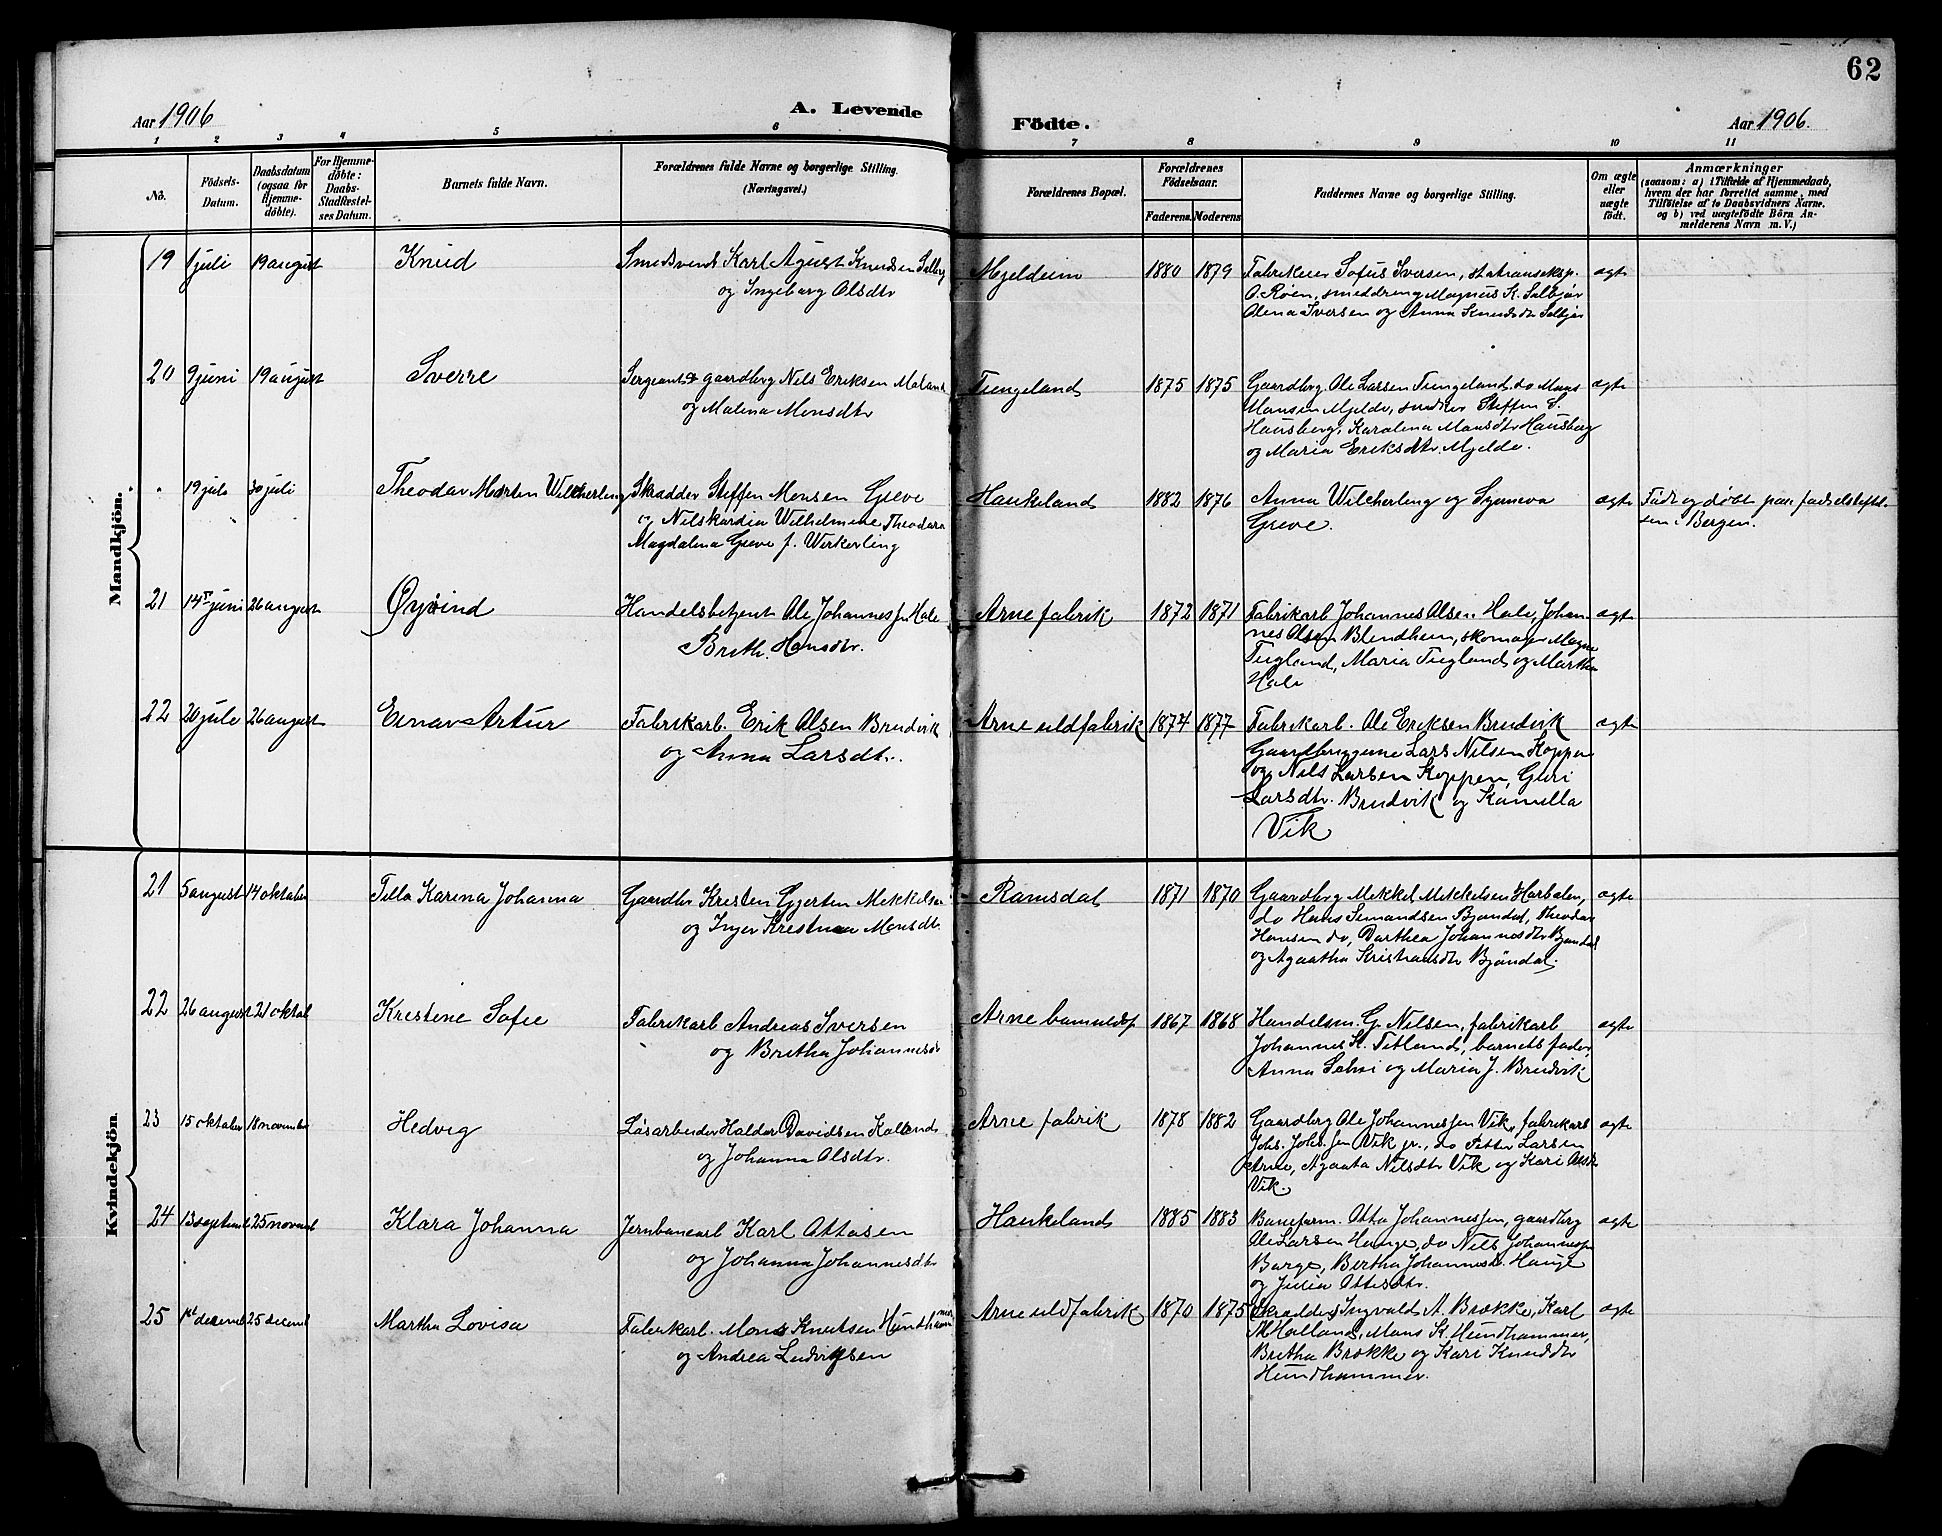 62
Aar 1906
A. Levende
Födte.
Aar 1906.
1 2 3 4 5 6 7 8 9 10 11
No.
Födsels-
Datum.
Daabsdatum
(ogsaa for
Hjemme-
döbte).
For Hjemme-
döbte:
Daabs-
Stadfæstel-
ses Datum.
Barnets fulde Navn.
Forældrenes fulde Navne og borgerlige Stilling.
(Næringsvei.)
Forældrenes Bopæl.
Forældrenes
Födselsaar.
Faderens. Moderens.
Faddernes Navne og borgerlige Stilling.
Om ægte
eller
uægte
født.
Anmærkninger
(saasom: a) i Tilfælde af Hjemmedaab,
hvem der har forrettet samme, med
Tilföielse af to Daabsvidners Navne,
og b) ved uægtefödte Börn An-
melderens Navn m. V.)
Mandkjön.
19 1 juli 19 august Knud Smedsvend Karl Agust Knudsen
og Ingeborg Olsdtr
Mjeldeim 1880 1879 Fabrikeier Sofus Iversen, stationseksp.
O. Røen, smeddreng Magnus K. Salbjør
Olena Iversen og Anna Knudsdtr Salbjør
ægte
20 9 juni 19 august Sverre Sergeant & gaardbrg Nils Eriksen
og Malena Monsdtr
Tungeland 1875 1875 Gaardbrg. Ole Larsen Tungeland, do Mons
Monsen Mjelde, snedker Steffen S.
Hausberg, Karolina Monsdtr Hausberg
og Maria Eriksdtr Mjelde.
ægte
19 juli 30 juli Theodor Morten Wilcherling Skrædder Steffen Monsen Greve
og Nilskardia Wilhelmine Theodora
Magdalena Greve f. Wirkerling
Haukeland 1882 1876 Anna Wilcherling og Synneva
Greve.
ægte Født og døbt paa fødselsstiftel-
sen i Bergen.
21 14 juni 26 august Øyvind Handelsbetjent Ole Johannessen Hole
Brith. Hansdtr.
Arne fabrik 1872 1871 Fabrikarb Johannes Olsen Hole, Johan-
nes Olsen Blindheim, skomager Magne
Tugland, Maria Tugland og Martha
Hole
ægte
22 20 juli 26 august Einar Artur Fabrikarb. Erik Olsen Brudvik
og Anna Larsdtr.
Arne uldfabrik 1874 1877 Fabrikarb. Ole Eriksen Brudvik
Gaardbrugerne Lars Nilsen Koppen
og Nils Larsen Koppen, Guri
Larsdtr. Brudvik og Kamilla
Vik
ægte
Kvindekjön
21 5 august 14 oktober Tilla Karina Johanna Gaardbr Kresten Gjerten Mekkelsen
og Inger Krestina Monsdtr.
Ramsdal 1871 1870 Gaardbrg Mekkel Mekkelsen Harbalen,
do Hans Simondsen Bjøndal, Theodor
Hansen do, Dorthea Johannesdtr Bjøndal
og Agaatha Kristiansdtr Bjøndal.
ægte
22 26 august 21 oktob Krestine Sofie Fabrikarb Andreas Iversen
og Bretha Johannesdtr
Arne bomuldsf 1867 1868 Handelsm. G. Nilsen, fabrikarb
Johannes K. Titland, barnets fader,
Anna og Maria J. Brudvik
ægte
23 15 oktober 18 november Hedvig Løsarbeider Haldor Davidsen
og Johanna Olsdtr.
Arne fabrik 1878 1882 Gaardbrg Ole Johannessen Vik, fabrikarb
Johs. Johs.sen Vik jr., do Petter Larsen
Arne, Agaata Nilsdtr Vik og Kari Olsdtr
Vik.
ægte
24 13 septemb 25 novemb Klara Johanna Jernbanearb Karl Ottosen
og Johanna Johannesdtr
Haukeland 1885 1883 Baneform. Otto Johannessen, gaardbrg
Ole Larsen Hauge, do Nils Johannessen
Borge, Bertha Johannesdtr Hauge
og Julia Ottosdtr.
ægte
25 1st decemb 25 decemb Martha Lovisa Fabrikarb. Mons Knutsen Hundhammer
og Andrea Ludvigsen
Arne uldfabrik 1870 1875 Skrædder Ingvald A. Brække, Karl
M Holland, Mons K. Hundhammer,
Bretha Brække og Kari Knudsdtr
Hundhammer.
ægte